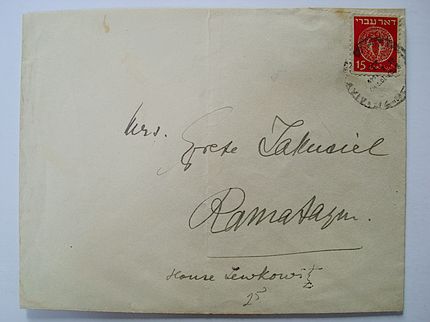 דאר עברי
15
Mrs. Grete Jakusiel
Ramataym.
House Lewkowitz
25